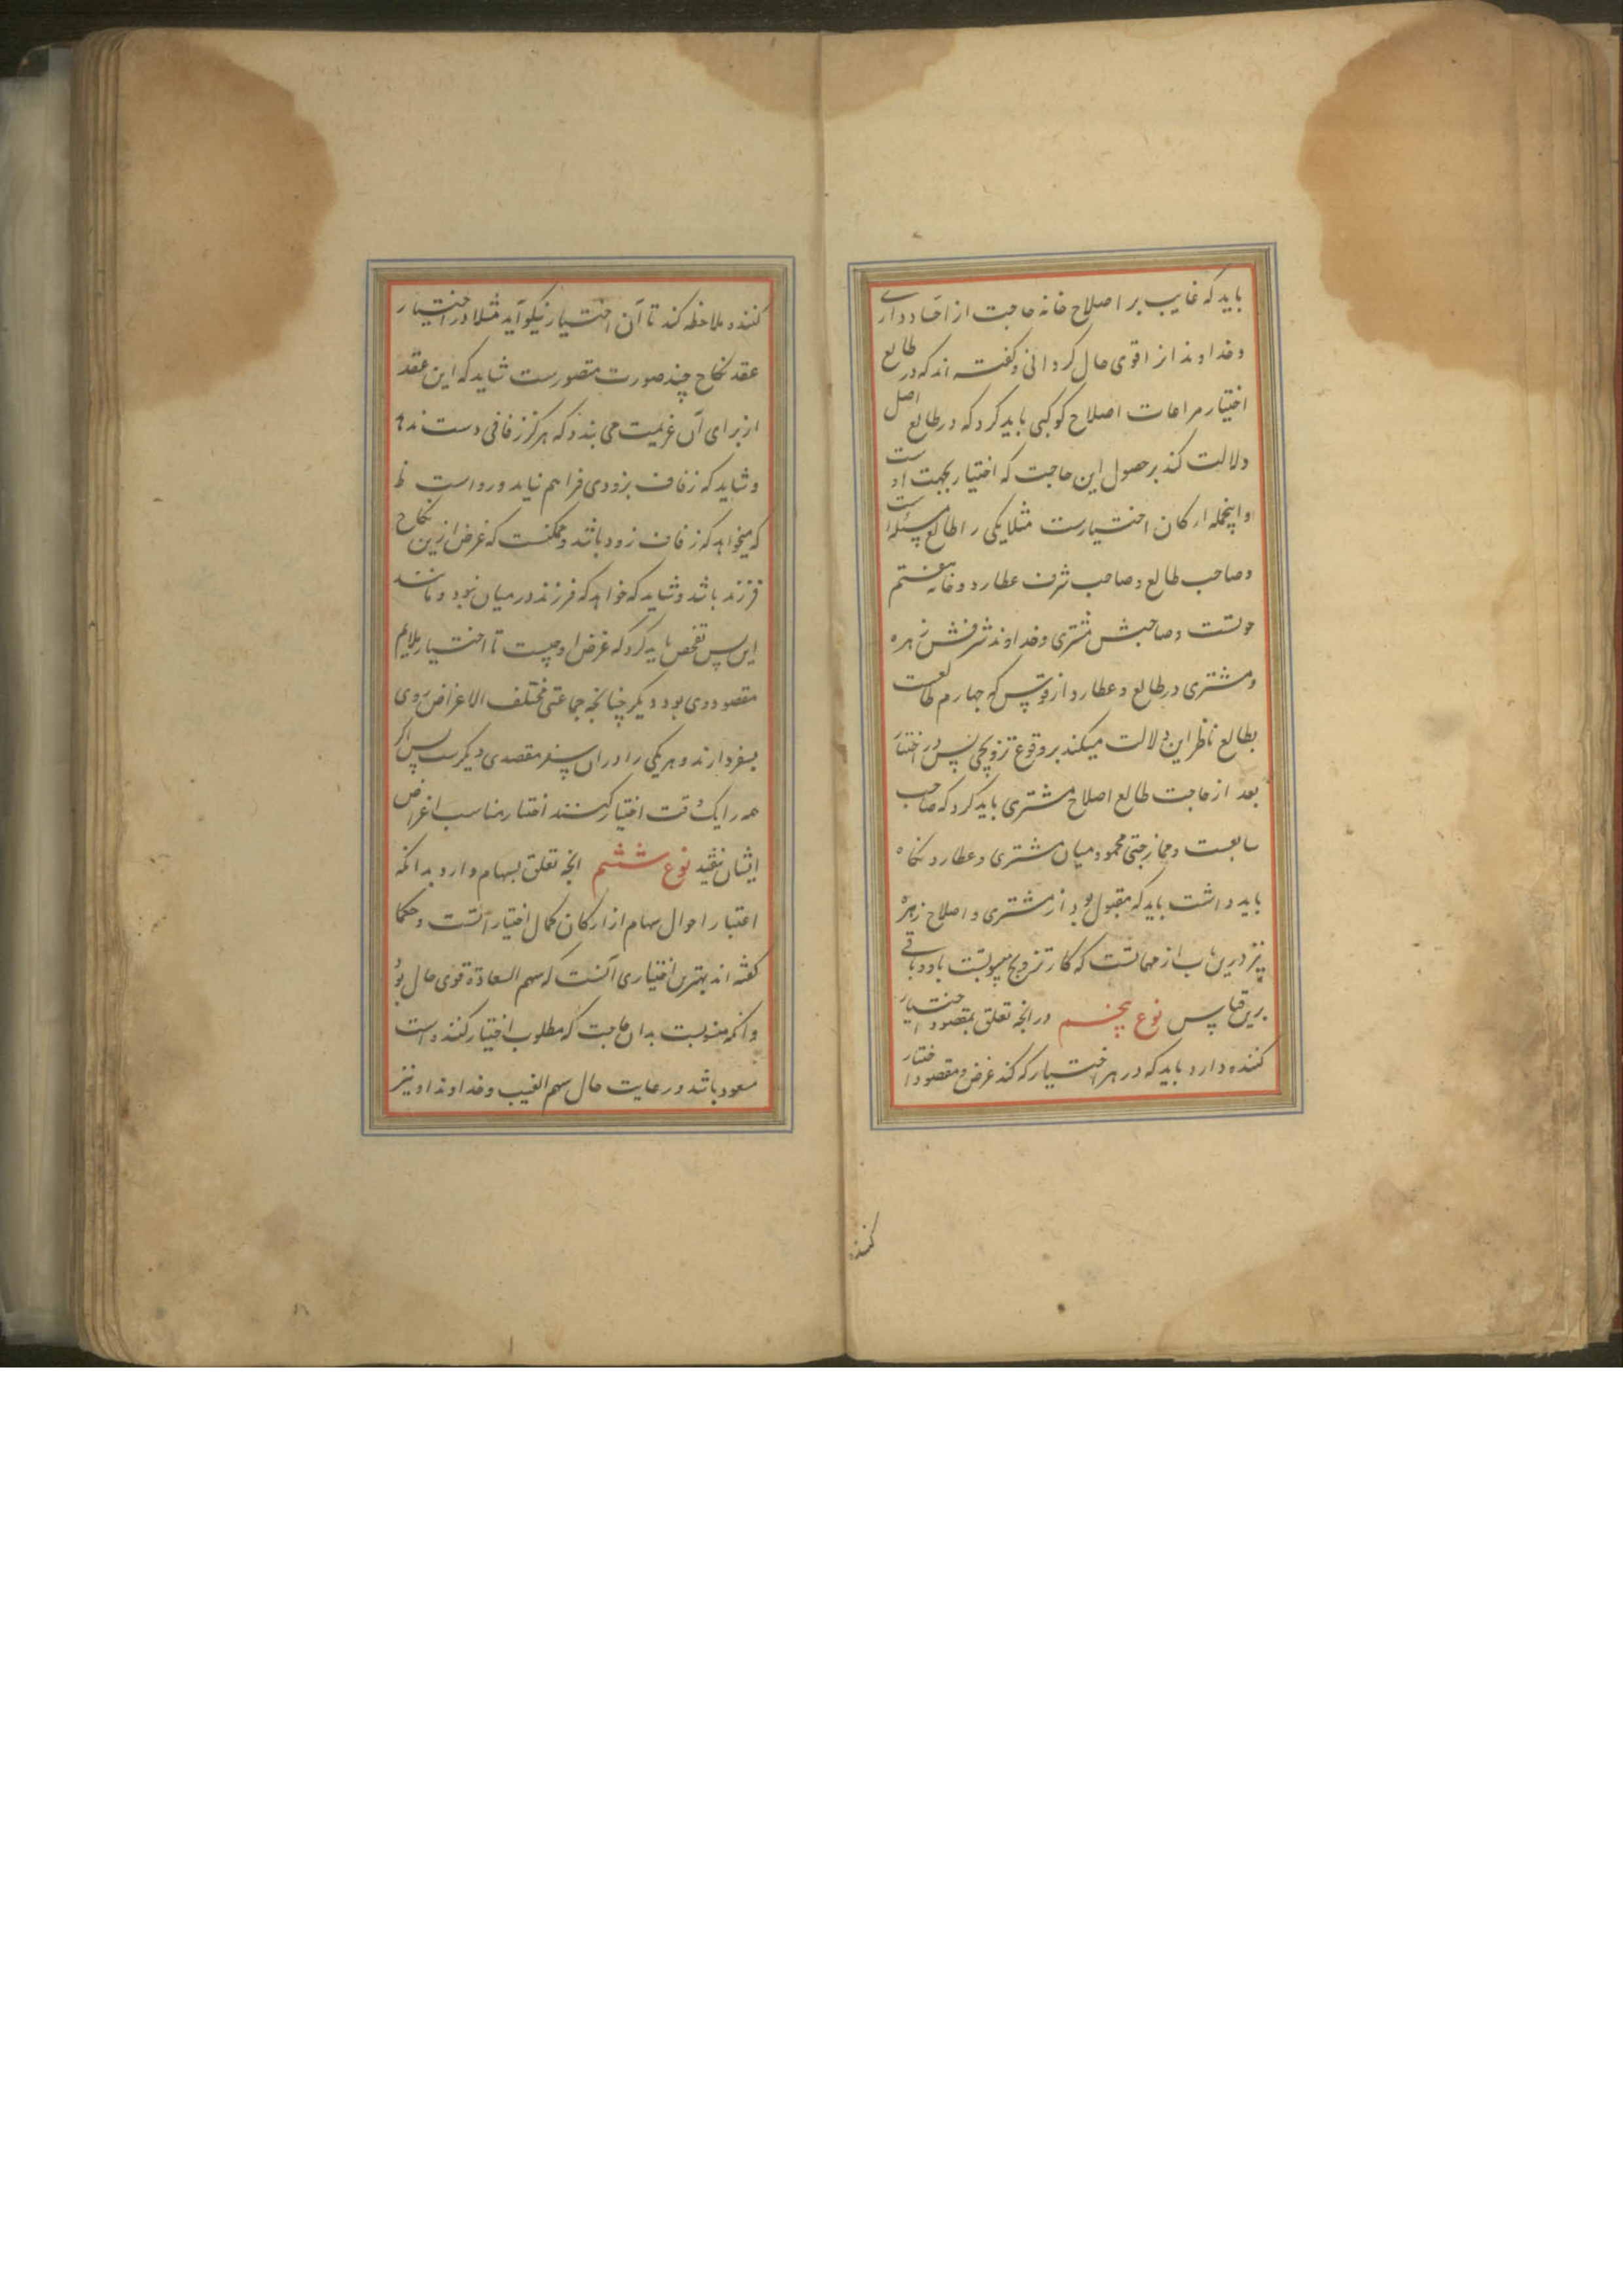 باید که غایب بر اصلاح خانه حاجت از دارے
و خداوند از اقوی حال کردانی و کفته اند که در طالع
اختیار مراعات اصلاح کوکبی باید کرد که در طالع اصل
دلالت کند بر حصول این حاجت که اختیار بجهت اوست
و اینجمله ارکان اختیارست مثلا یکی را طالع
و صاحب طالع و صاحب شرف عطارد و خانه هفتم
حوتست و صاحبش مشتری و خداوند شرفش زهره
و مشتری در طالع و عطارد از قوس که چهارم طالعست
بطالع ناظر این دلالت میکند بر وقوع تزویجی پس در اختیار
بعد از حاجت طالع اصلاح مشتری باید کرد که صاحب
سابعست و ممازجتی محمود میان مشتری و عطارد نکاه
باید داشت باید که مقبول بود از مشتری و اصلاح زهره
نیز درین باب از مهماتست که کار تزویج باو و باقی
برین قیاس نوع پنجم در انچه تعلق بمقصود اختیار
کننده دارد باید که در هر اختیار که کند غرض و مقصود اختیار
کننده
کننده ملاحظه کند تا آن اختیار نیکو آید مثلا در اختیار
عقد نکاح چند صورت متصورست شاید که این عقد
از برای آن عزیمت می بندد که هرکز زفافی دست ندهد
و شاید که زفاف بزودی فراهم نیاید و رواست
که میخواهد که زفاف زود باشد و ممکنست که غرض ازین نکاح
فرزند باشد و شاید که خواهد که فرزند در میان نبود و مانند
این پس تفحص باید کرد که غرض او چیست تا اختیار ملایم
مقصود وی بود دیکر چنانچه جماعتی مختلف الاغراض روی
بسفر دارند و هر یکی را در ان سفر مقصدی دیکرست پس اکر
همه را یک وقت اختیار کنند اختیار مناسب اغراض
ایشان نیفتد نوع ششم انچه تعلق بسهام دارد بدانکه
اعتبار احوال سهام از ارکان کمال اختیاراتست و حکما
کفته اند بهترین اختیاری آنست که سهم السعادة قوی حال بود
و انکه منسوبست بدان حاجت که مطلوب اختیار کننده است
مسعود باشد و رعایت حال سهم الغیب و خداوند او نیز